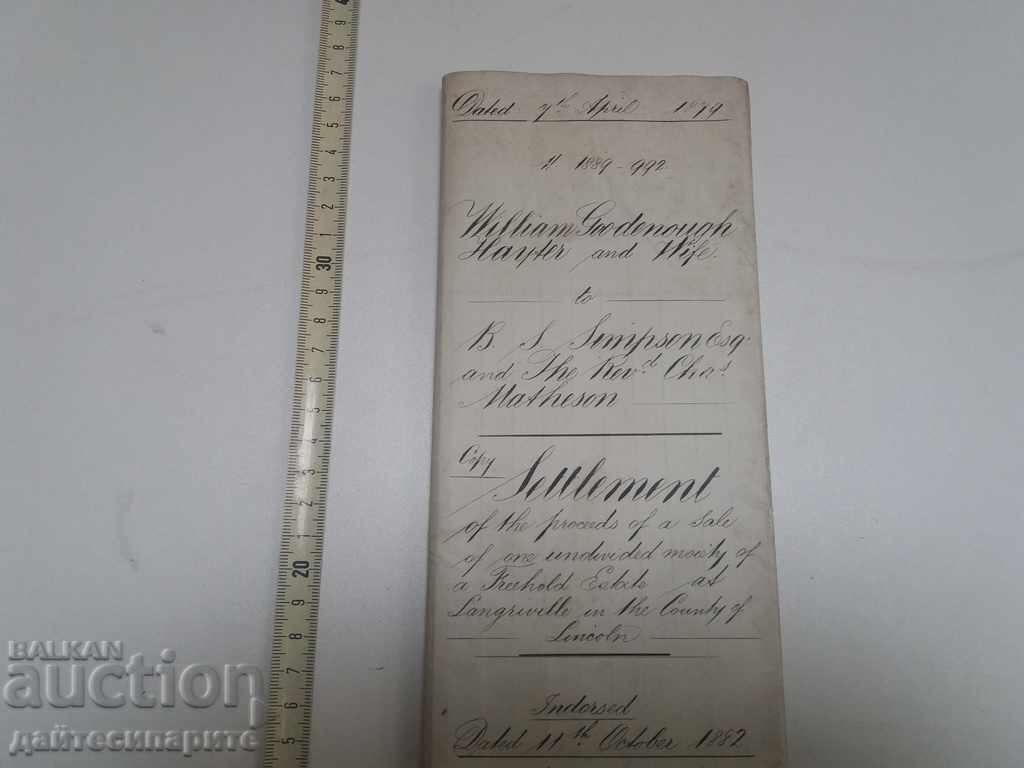 Dated 7th April 1879
1889-992
William Goodenough
Hayter and Wife.
to
B S Simpson Esq.
and The Revd. Chas
Matheson
Copy
Settlement
of the proceeds of a Sale
of one undivided moiety of
a Freehold Estate at
Langriville in the County of
Lincoln
Indorsed
Dated 11th October 1882
9
8
7
6
5
4
3
2
1
30
9
8
7
6
5
4
3
2
1
20
9
8
7
6
5
BALKAN
auction
дайтесипарите